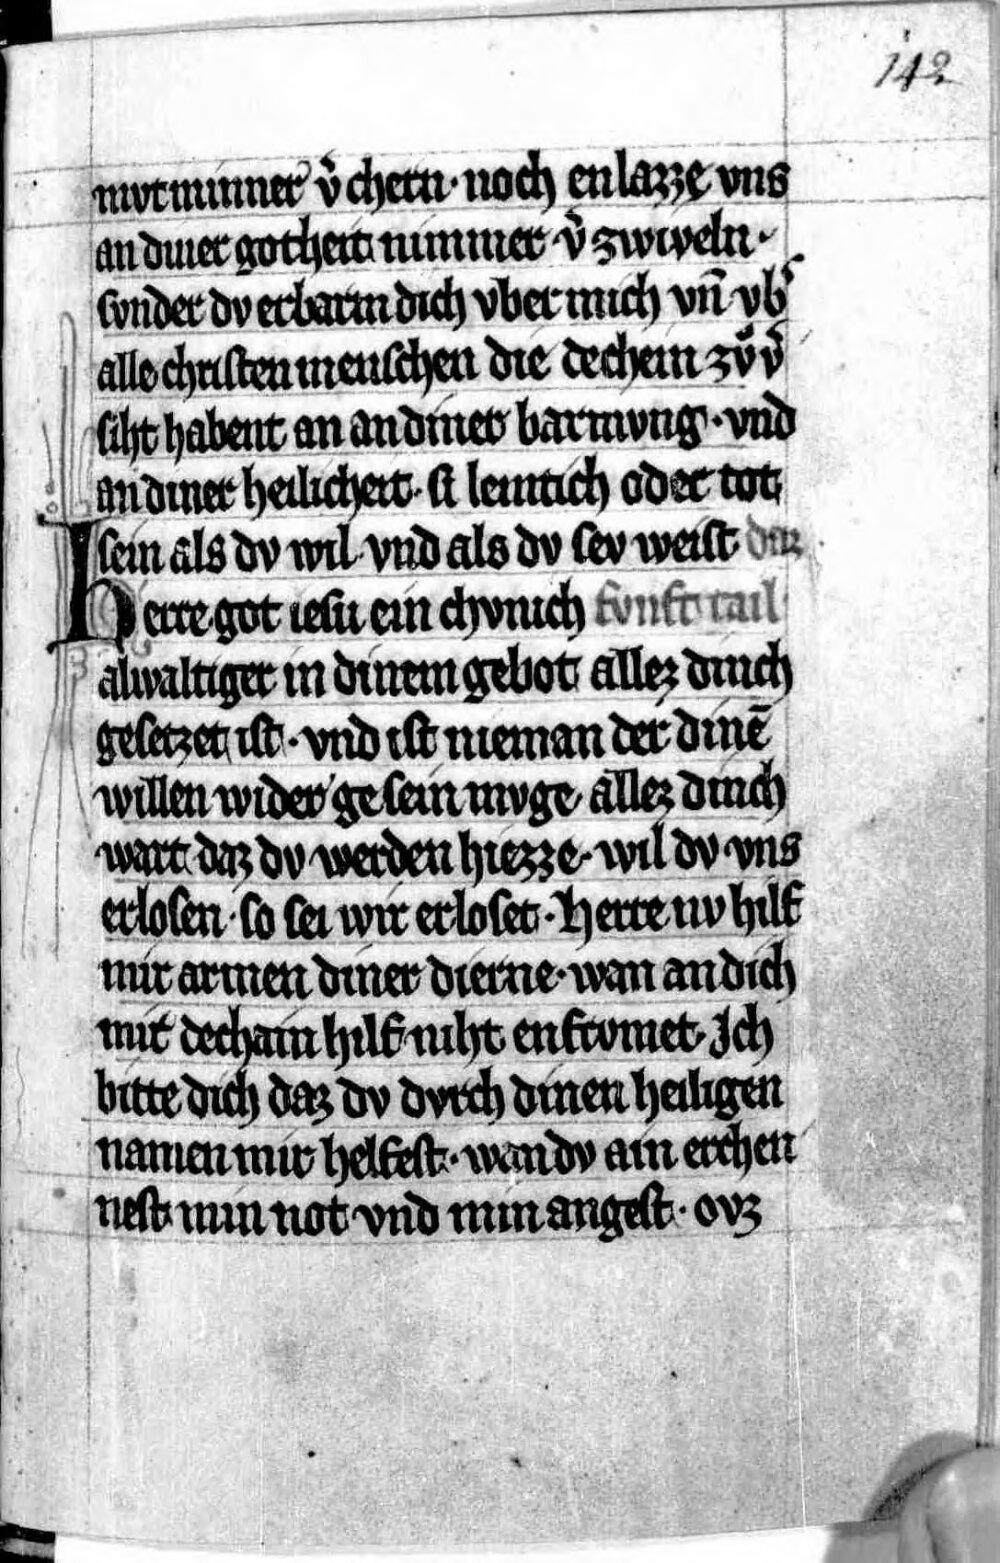 142
mvt minner v͛chern · noch enlazze vns
an diner gotheit nimmer · v͛zwiveln ·
svnder dv erbarm dich vber mich vn̄ vb͛
alle christen menschen die dechein zv̊v͛
siht habent an an diner barmvng · vnd
an diner heilicheit · si lemtich oder tot
sein als dv wil · vnd als dv sev weist daz
Herre got iesu ein chvnich fvnft tail
alwaltiger in dinem gebot allez dinch
gesetzet ist · vnd ist nieman der dinē
willen wider gesein mvge allez dinch
wart daz dv werden hiezze · wil dv vns
erlosen · so sei wir erloset · Herre nv hilf
mir armen diner dierne · wan an dich
mir dechain hilf niht enfrvmet · Ich
bitte dich daz dv dvrch dinen heiligen
namen mir helfest · wan dv ain erchen
nest min not vnd min angest · ovz